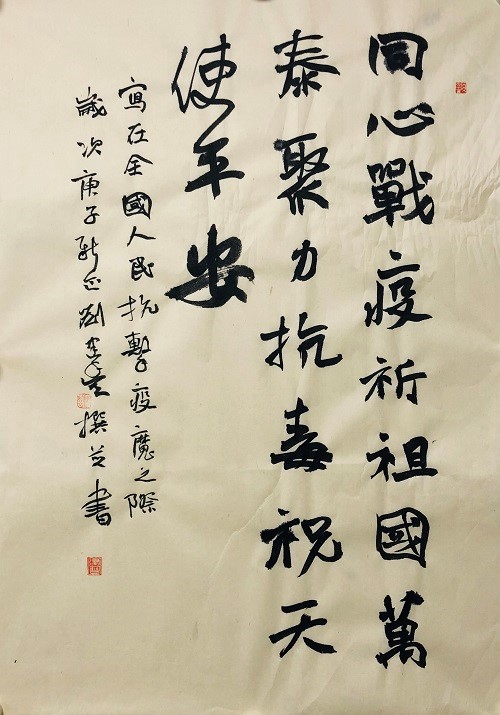 同心戰疫祈祖國萬
泰聚力抗毒祝天
使平安
寫在全國人民抗擊疫魔之際
歲次庚子新正劉撰並書